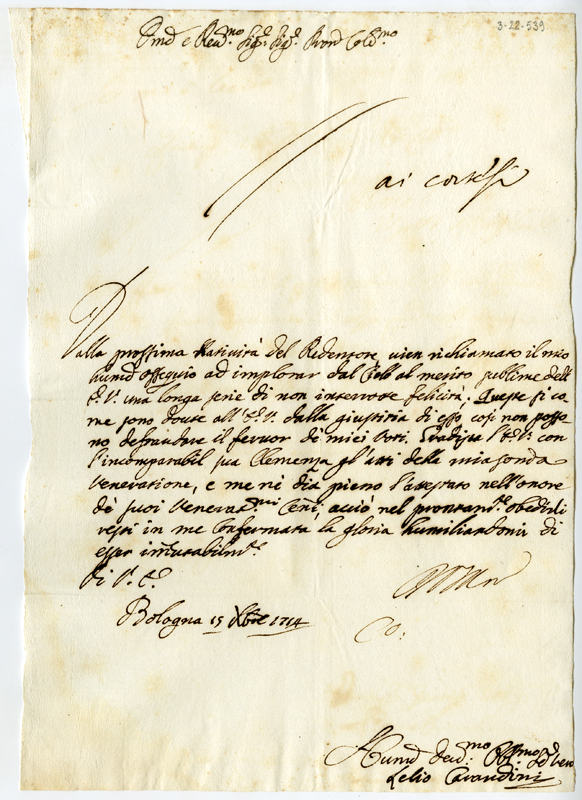 3-22-539
Em̃o e Reu.mo Sig.r Sig.r Pron Col.mo
ai cortesi
Dalla prossima Natività del Redentore, vien richiamato il mio
humo ossequio ad implorar dal Cielo al merito sublime dell'
E. V. una longa serie di non interrotte felicità. Queste si co
me sono douute all' E. V. dalla giustitia di esso così non posso
no defraudare il feruor de miei voti. Gradisca l'E. V. con
l'incomparabil sua Clemenza gl'atti della mia
Veneratione, e me ne dia pieno l'attestato nell'onore
de suoi Venerat.mi Ceni, acciò nel prontan.te obedirli
resti in me Confermata la gloria humiliandomi di
esser immutabilm.te
Di V. E.
Bologna 15 Xbre 1714
Co:
Humo deu.mo Obl.mo
Lelio